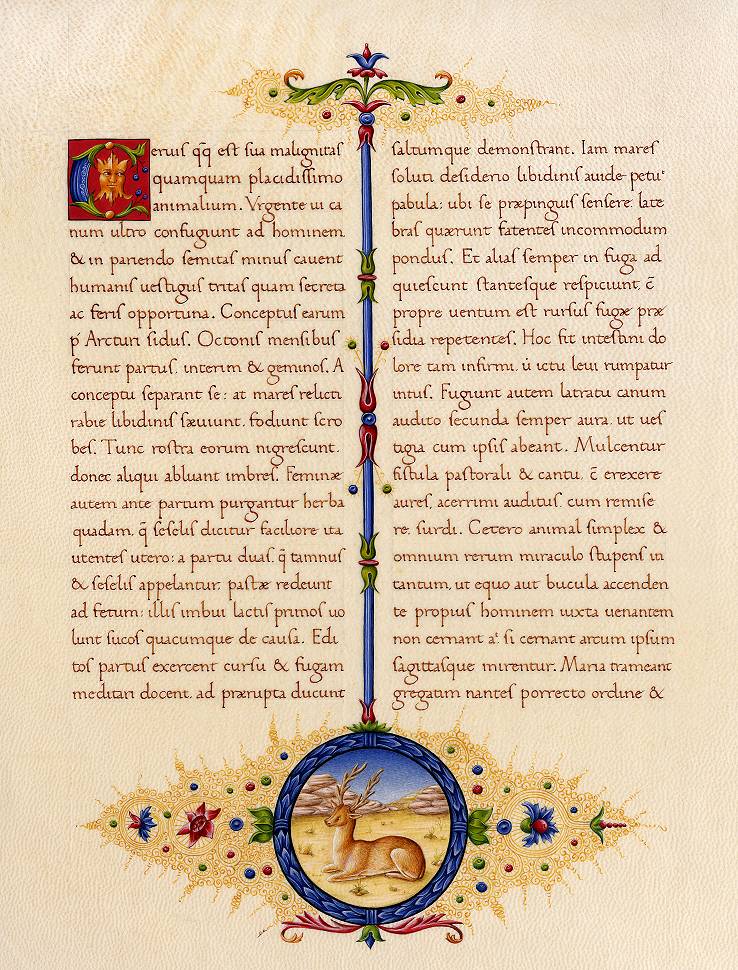 Ceruis q̃q est sua malignitas
quamquam placidissimo
animalium. Vrgente ui ca
num ultro confugiunt ad hominem
& in pariendo semitas minus cauent
humanis uestigiis tritas quam secreta
ac feris opportuna. Conceptus earum
p' Arcturi sidus. Octonis mensibus
ferunt partus, interim & geminos. A
conceptu separant se: at mares relicti
rabie libidinis sæuiunt. fodiunt scro
bes. Tunc rostra eorum nigrescunt.
donec aliqui abluant imbres. Feminæ
autem ante partum purgantur herba
quadam. q̃ seselis dicitur faciliore ita
utentes utero: a partu duas. q̃ tamnus
& seselis appelantur. pastæ redeunt
ad fetum: illis imbui lactis primos uo
lunt sucos quacumque de causa. Edi
tos partus exercent cursu & fugam
meditari docent. ad prærupta ducunt
saltumque demonstrant. Iam mares
soluti desiderio libidinis auide petu͛
pabula: ubi se præpinguis sensere. late
bras quærunt fatentes incommodum
pondus. Et alias semper in fuga ad
quiescunt stantesque respiciunt. c̃
propre uentum est rursus fugæ præ
sidia repetentes. Hoc fit intestini do
lore tam infirmi. ú ictu leui rumpatur
intus. Fugiunt autem latratu canum
audito secunda semper aura. ut ues
tigia cum ipsis abeant. Mulcentur
fistula pastorali & cantu. c̃ erexere
aures, acerrimi auditus, cum remise
re. surdi. Cetero animal simplex &
omnium rerum miraculo stupens in
tantum, ut equo aut bucula accenden
te propius hominem iuxta uenantem
non cernant aᵗ si cernant arcum ipsum
sagittasque mirentur. Maria trameant
gregatim nantes porrecto ordine &